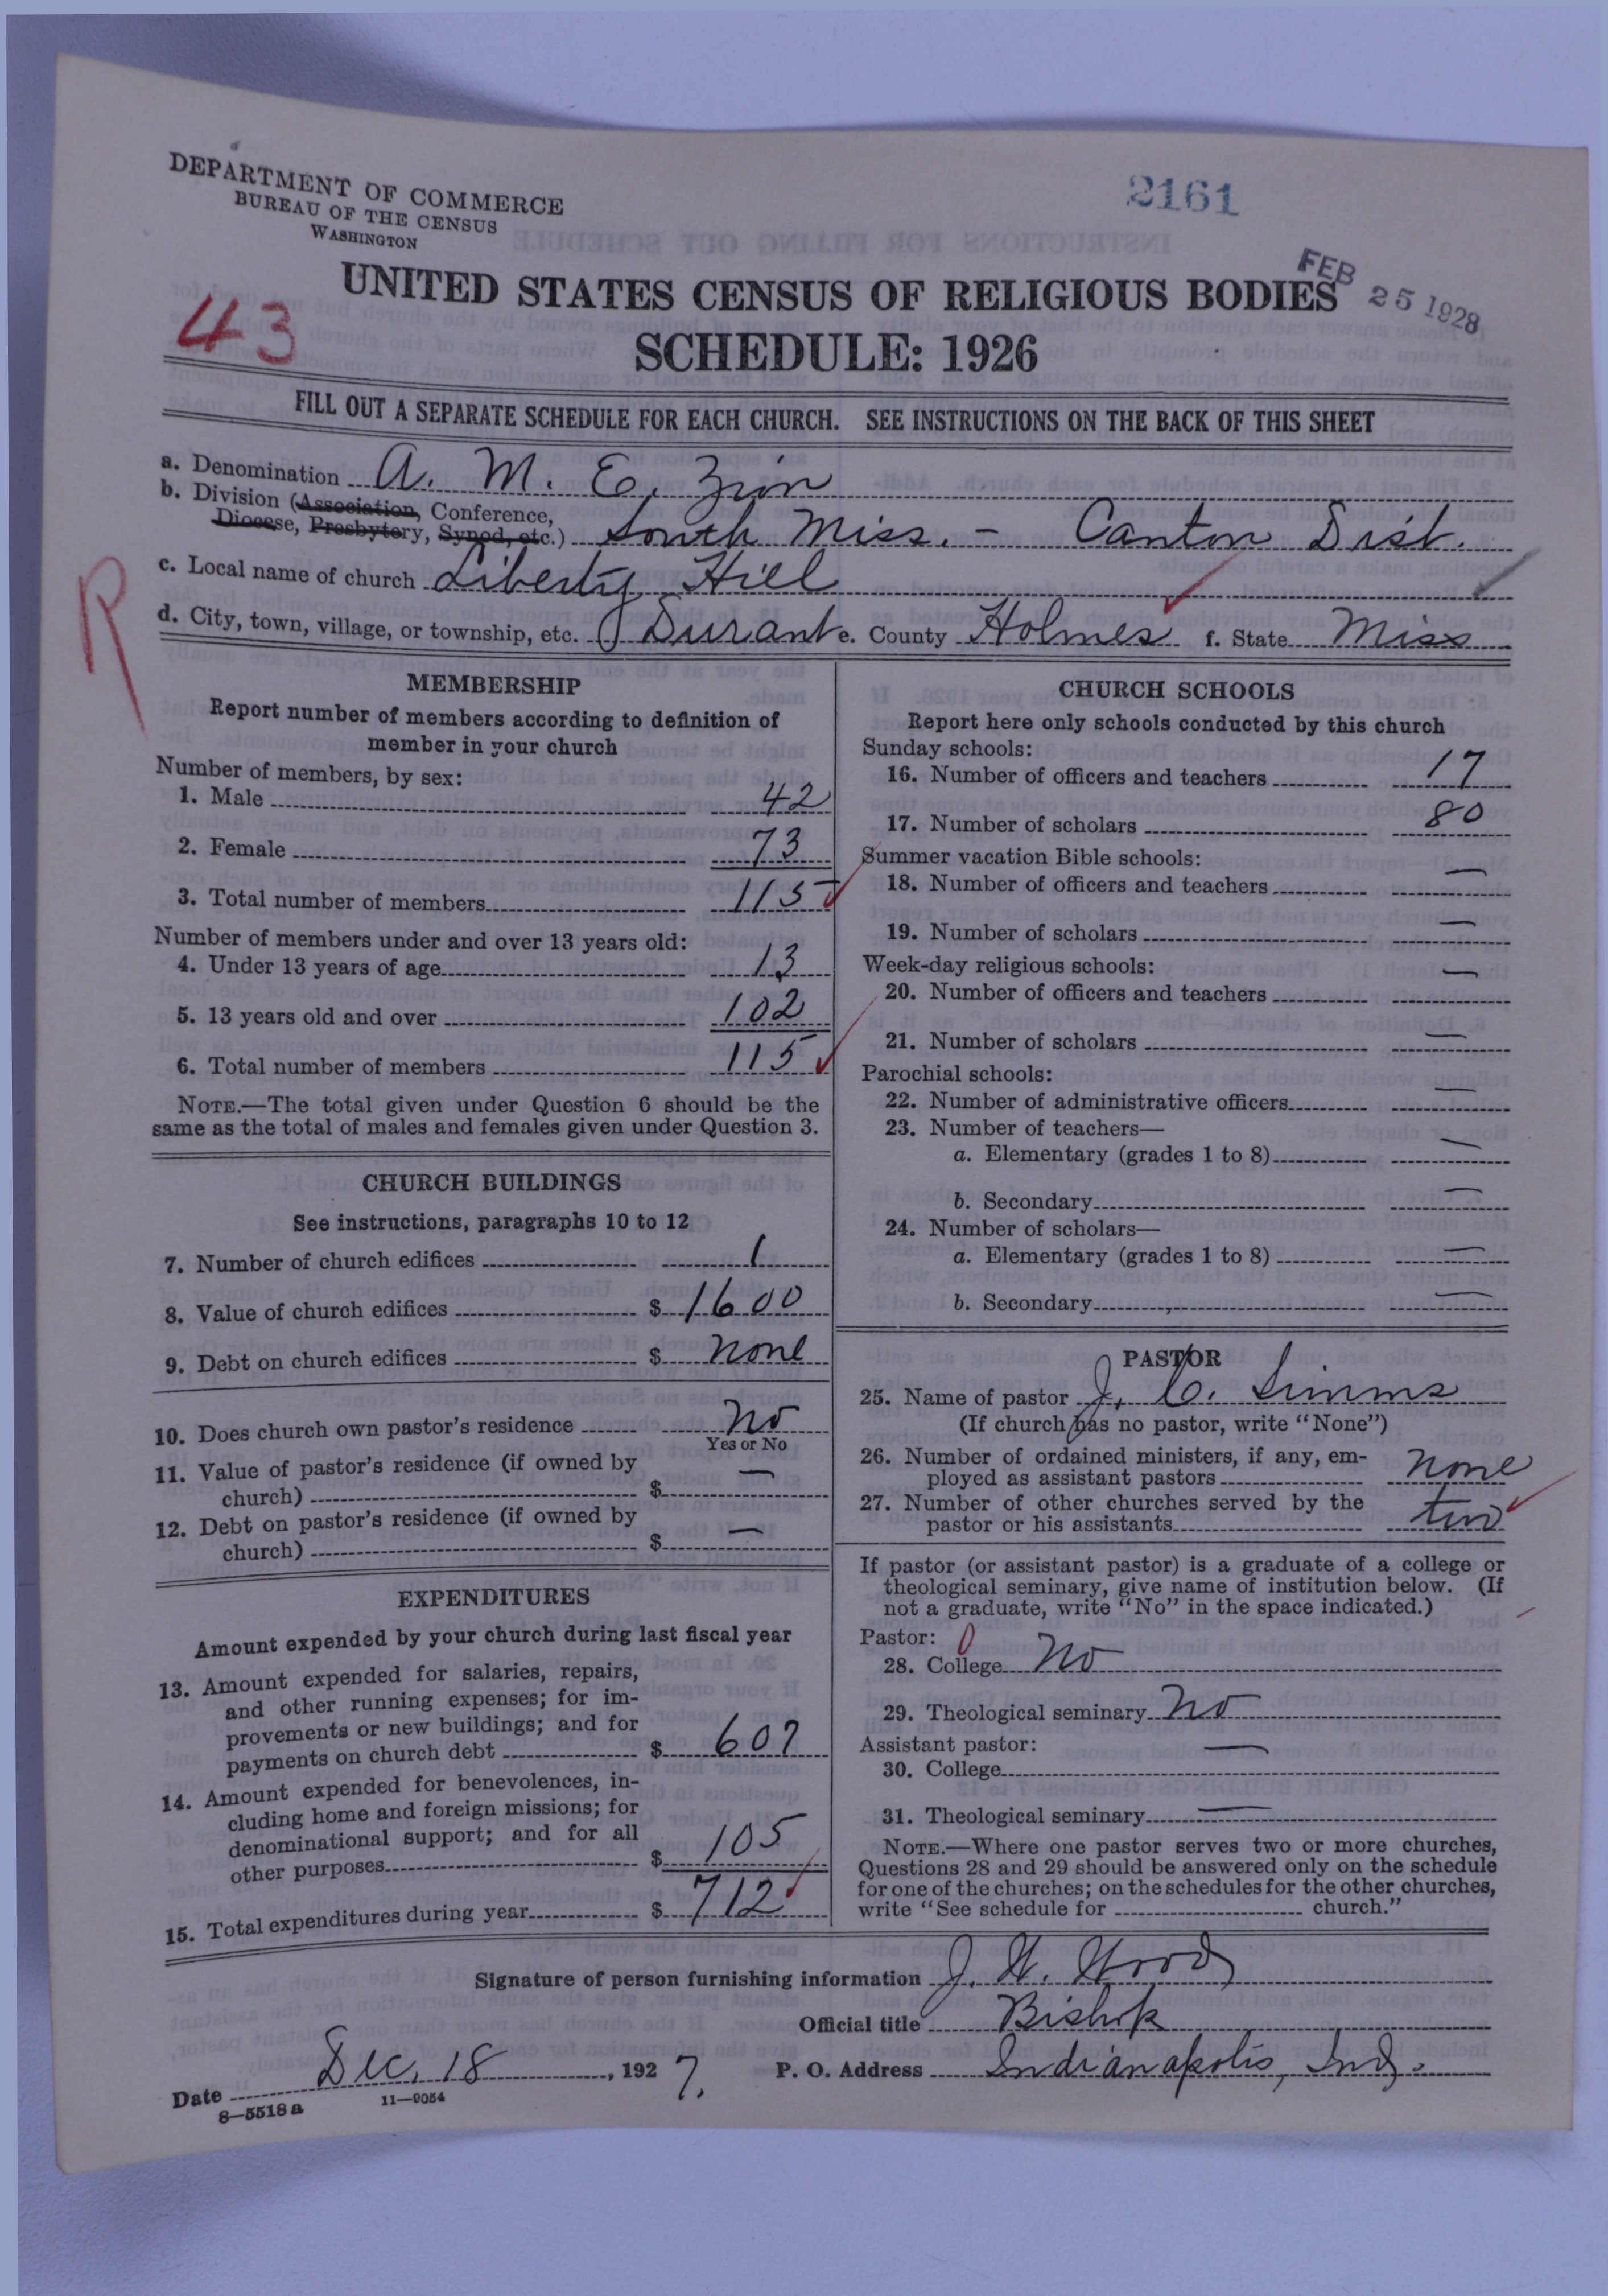 DEPARTMENT OF COMMERCE
BUREAU OF THE CENSUS
WASHINGTON
2161
FEB 25 1928
UNITED STATES CENSUS OF RELIGIOUS BODIES
43
SCHEDULE: 1926
FILL OUT A SEPARATE SCHEDULE FOR EACH CHURCH. SEE INSTRUCTIONS ON THE BACK OF THIS SHEET
a. Denomination A. M. E. Zion
b. Division (Association, Conference,
Diocese, Presbytery, Synod, etc.) South Miss. - Canton Dist.
c. Local name of church Liberty Hill
R
d. City, town, village, or township, etc. Durant e. County Holmes f. State Miss
MEMBERSHIP
Report number of members according to definition of
member in your church
Number of members, by sex:
1. Male 42
2. Female 73
3. Total number of members 115
Number of members under and over 13 years old:
4. Under 13 years of age 13
5. 13 years old and over 102
6. Total number of members 115
NOTE.—The total given under Question 6 should be the
same as the total of males and females given under Question 3.
CHURCH BUILDINGS
See instructions, paragraphs 10 to 12
7. Number of church edifices 1
8. Value of church edifices $ 1600
9. Debt on church edifices $ none
10. Does church own pastor's residence no
Yes or No
11. Value of pastor's residence (if owned by
church) $ —
12. Debt on pastor's residence (if owned by
church) $ —
EXPENDITURES
Amount expended by your church during last fiscal year
13. Amount expended for salaries, repairs,
and other running expenses; for im-
provements or new buildings; and for
payments on church debt $ 607
14. Amount expended for benevolences, in-
cluding home and foreign missions; for
denominational support; and for all
other purposes $ 105
15. Total expenditures during year $ 712
CHURCH SCHOOLS
Report here only schools conducted by this church
Sunday schools:
16. Number of officers and teachers 17
17. Number of scholars 80
Summer vacation Bible schools:
18. Number of officers and teachers —
19. Number of scholars —
Week-day religious schools:
20. Number of officers and teachers —
21. Number of scholars —
Parochial schools:
22. Number of administrative officers —
23. Number of teachers—
a. Elementary (grades 1 to 8) —
b. Secondary —
24. Number of scholars—
a. Elementary (grades 1 to 8) —
b. Secondary —
PASTOR
25. Name of pastor J. C. Simms
(If church has no pastor, write "None")
26. Number of ordained ministers, if any, em-
ployed as assistant pastors none
27. Number of other churches served by the
pastor or his assistants two
If pastor (or assistant pastor) is a graduate of a college or
theological seminary, give name of institution below. (If
not a graduate, write "No" in the space indicated.)
Pastor: 0
28. College No
29. Theological seminary No
Assistant pastor:
30. College —
31. Theological seminary —
NOTE.—Where one pastor serves two or more churches,
Questions 28 and 29 should be answered only on the schedule
for one of the churches; on the schedules for the other churches,
write "See schedule for church."
Signature of person furnishing information J. W. Wood
Official title Bishop
Date Dec. 18, 1927. P. O. Address Indianapolis, Ind.
8—5518a 11—9054